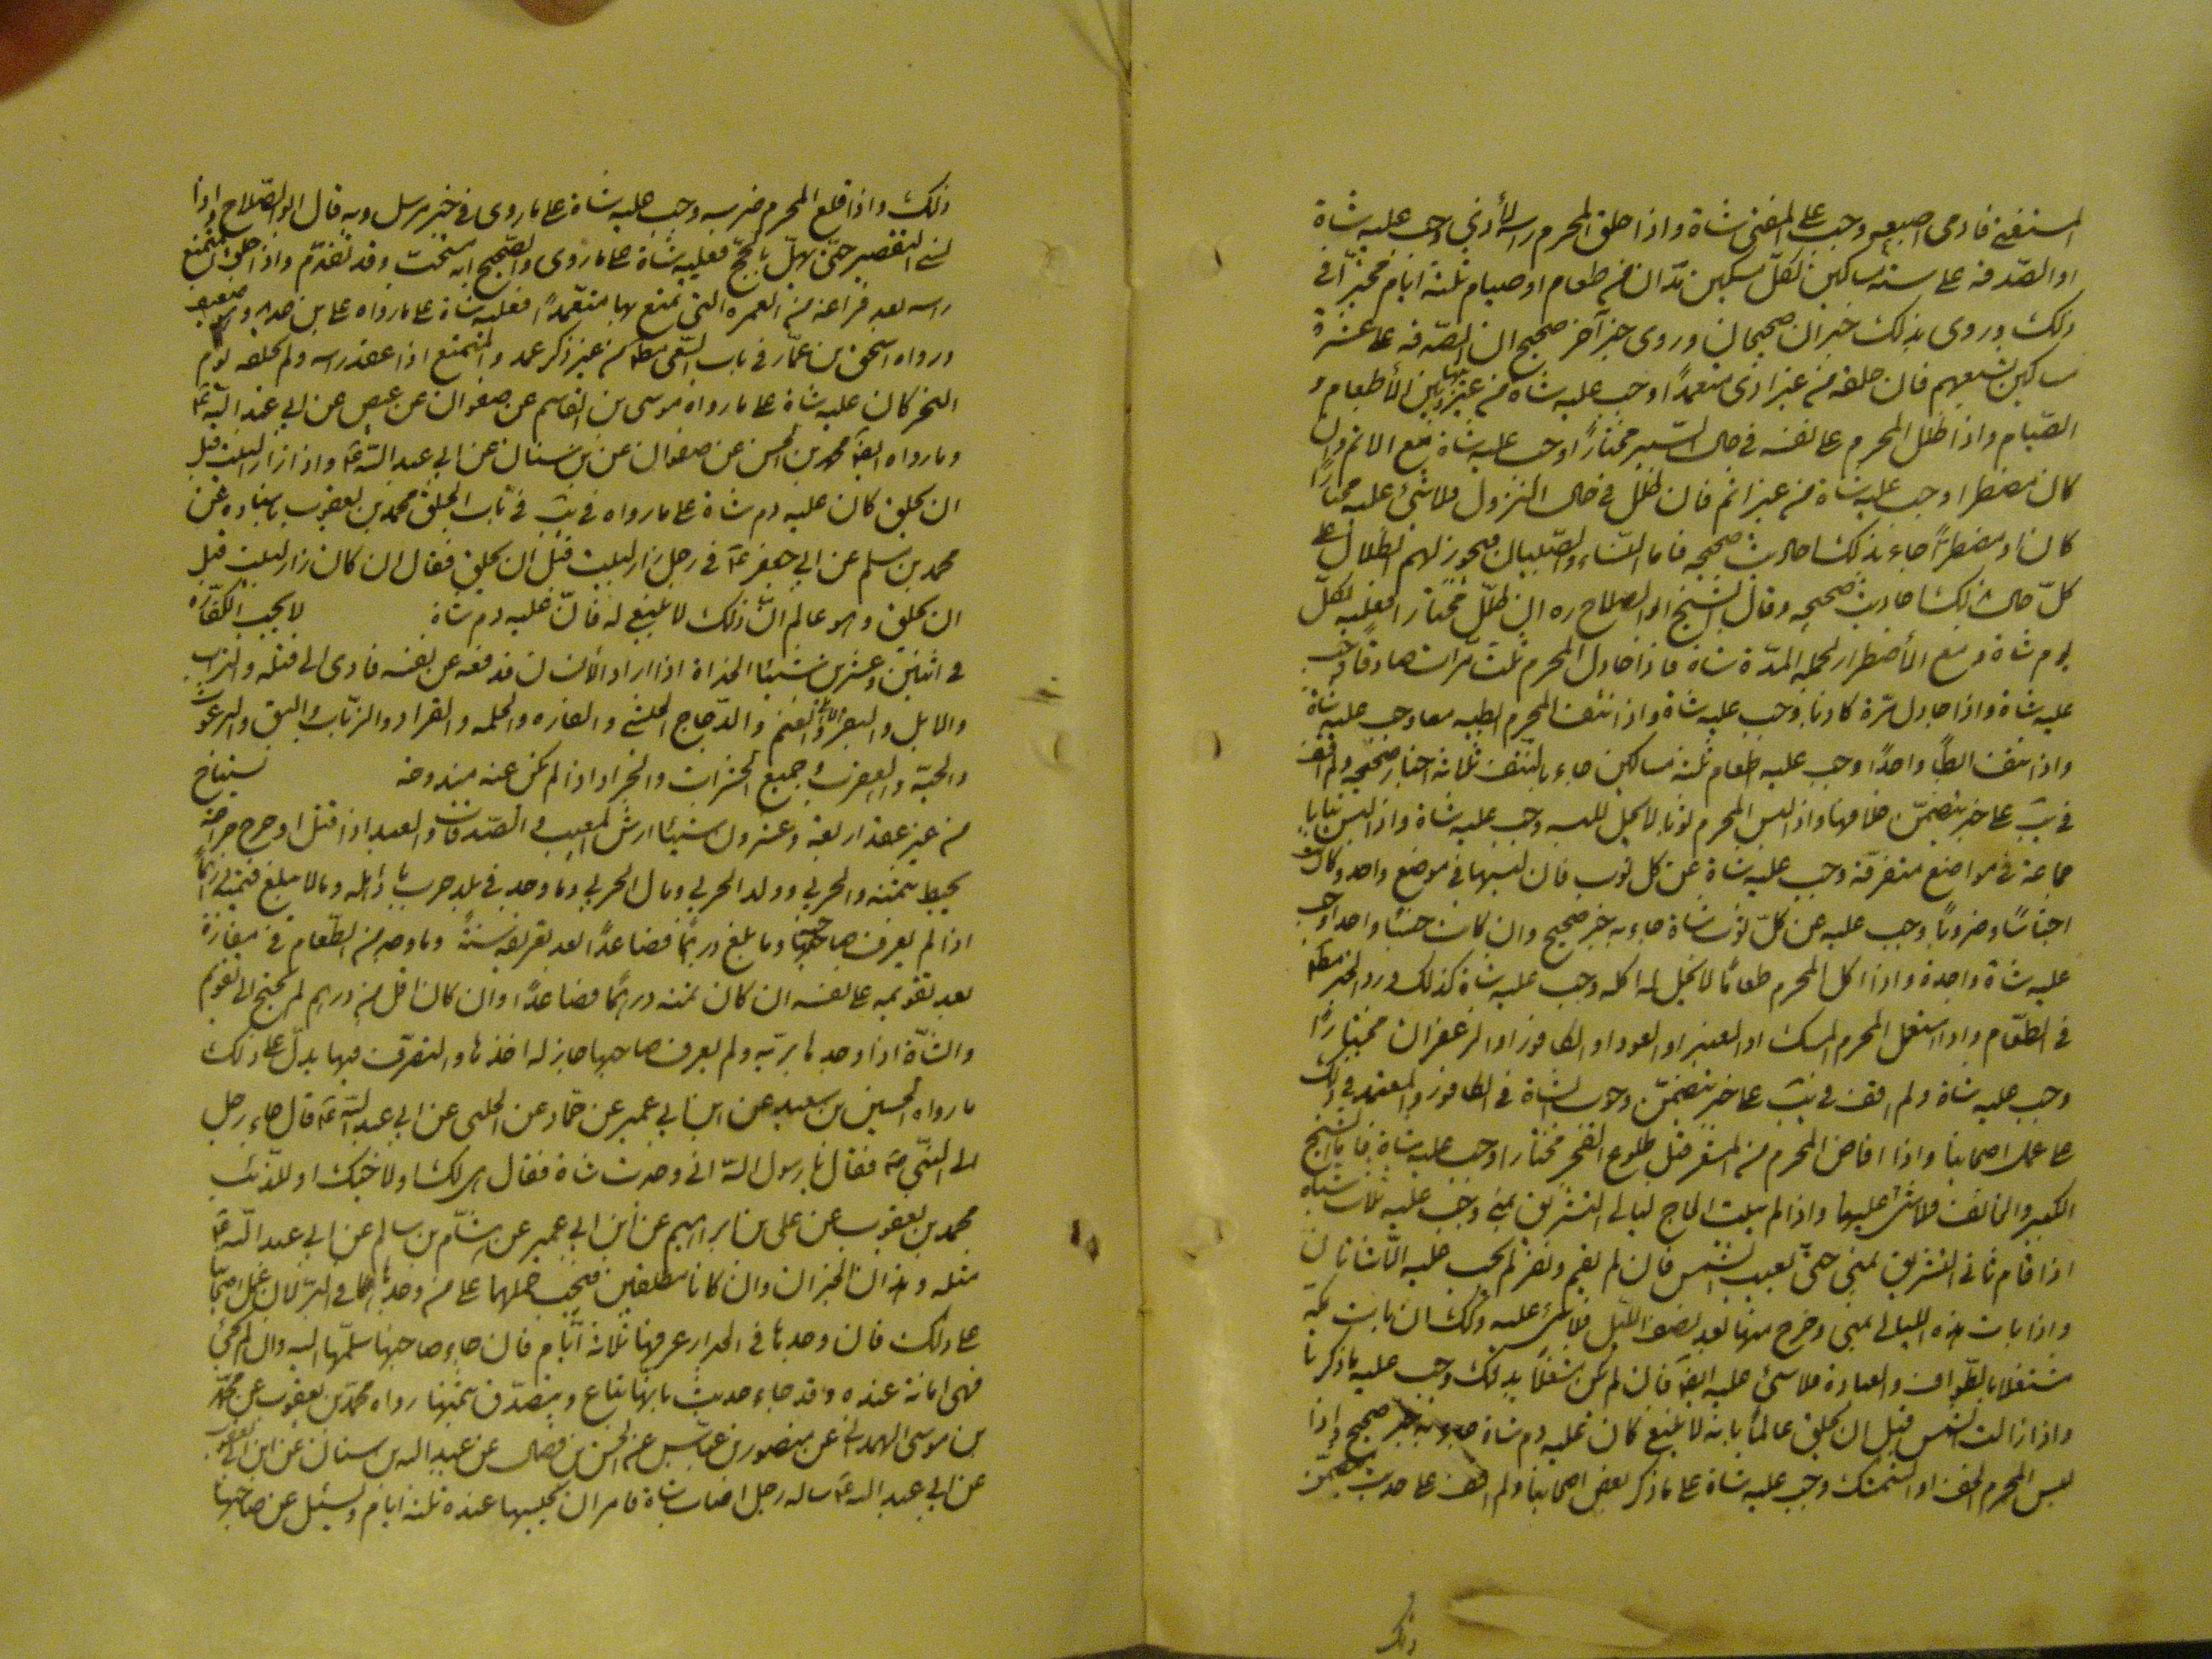 المستفتي فادمى اصبعه وجب على المفتي شاة واذا حلق المحرم راسه لأذى وجب عليه شاة
او الصدقة على ستة مساكين لكل مسكين مدان من طعام او صيام ثلثة ايام مخيرا في
ذلك وروى بذلك خبران صحيحان وروى خبر آخر صحيح ان الصدقة على عشرة
مساكين يشبعهم فان حلقه من غير اذى متعمدا وجب عليه شاة من غير تخيير بين الأطعام و
الصيام واذا ظلل المحرم على نفسه في حال السير مختارا وجب عليه شاة مع الاثم وان
كان مضطرا وجب عليه شاة من غير اثم فان ظلل في حال النزول فلا شئ عليه مختارا
كان او مضطرا جاء بذلك احاديث صحيحه فاما النساء والصبيان فيجوز لهم الظلال على
كل حال بذلك احاديث صحيحه وقال الشيخ ابو الصلاح ره ان ظلل مختارا فعليه لكل
يوم شاة ومع الأضطرار لجملة المدة شاة فاذا جادل المحرم ثلث مرات صادقا وجب
عليه شاة واذا جادل مرة كاذبا وجب عليه شاة واذا نتف المحرم ابطيه معا وجب عليه شاة
واذا نتف ابطا واحدا وجب عليه اطعام ثلثة مساكين جاء بالنتف ثلاثة اخبار صحيحه ولم اقف
في يب على خبر يتضمن خلافها واذا لبس المحرم ثوبا لا يحل لبسه وجب عليه شاة واذا لبس ثيابا
جماعة في مواضع متفرقة وجب عليه شاة عن كل ثوب فان لبسها في موضع واحد وكان
اجناسا وضروبا وجب عليه عن كل ثوب شاة جاء به خبر صحيح وان كانت جنسا واحدا وجب
عليه شاة واحدة واذا اكل المحرم طعاما لا يحل له اكله وجب عليه شاة كذلك ورد الخبر مطلقا
في الطعام واذا استعمل المحرم المسك او العنبر او العود او الكافور او الزعفران مختارا
وجب عليه شاة ولم اقف في يب على خبر يتضمن وجوب الشاة في الكافور والمعتمد في ذلك
على عمل اصحابنا واذا افاض المحرم من المشعر قبل طلوع الفجر مختارا وجب عليه شاة فاما الشيخ
الكبير والخائف فلا شئ عليهما واذا لم يبت الحاج ليالي التشريق بمنى وجب عليه ثلاث شياه
اذا قام ثاني التشريق بمنى حتى تغيب الشمس فان لم يقم ونفر لم يجب عليه الا شاتان
واذا بات هذه الليالي بمنى وخرج منها بعد نصف الليل فلا شئ عليه وكذلك ان بات بمكة
مشتغلا بالطواف والعبادة فلا شئ عليه ايضا فان لم يكن مشتغلا بذلك وجب عليه ما ذكرنا
واذا زالت الشمس قبل ان يحلق عالما بانه لا ينبغي كان عليه دم شاة جاء به خبر صحيح واذا
لبس المحرم الخف او الشمشك وجب عليه شاة على ما ذكر بعض اصحابنا ولم اقف على حديث يتضمن
ذلك
ذلك واذا قلع المحرم ضرسه وجب عليه شاة على ما روى في خبر مرسل وبه قال ابو الصلاح واذا
نسي التقصير حتى يهل بالحج فعليه شاة على ما روى والصحيح انه مستحب وقد تقدم واذا حلق المتمتع
راسه بعد فراغه من العمره التي تمتع بها متعمدا فعليه شاة على ما رواه علي بن حديد وهو ضعيف
ورواه اسحق بن عمار في باب السعي مطلقا من غير ذكر عمد والمتمتع اذا عقد راسه ولم يحلقه يوم
النحر كان عليه شاة على ما رواه موسى بن القاسم عن صفوان عن عيص عن ابي عبد الله ع
وما رواه ايضا محمد بن الحسن عن صفوان عن بن سنان عن ابي عبد الله ع واذا زار البيت قبل
ان يحلق كان عليه دم شاة على ما رواه في يب في باب الحلق محمد بن يعقوب باسناده عن
محمد بن مسلم عن ابي جعفر ع في رجل زار البيت قبل ان يحلق فقال ان كان زار البيت قبل
ان يحلق وهو عالم ان ذلك لا ينبغي له فان عليه دم شاة لا يجب الكفارة
في اثنين وعشرين شيئا الحداة اذا اراد الأنسان فدفعه عن نفسه فادى الى قتله والهرب
والابل والبقر والغنم والدجاج الحبشي والفاره والحلمه والقراد والذباب والبق والبرغوث
والحية والعقرب وجميع الحشرات والجراد اذا لم يكن عنه مندوحة يستباح
من غير عقد اربعة وعشرون شيئا ارش المعيب والصدقات والعبد اذا قتل او جرح جراحة
يحيط بثمنه والحربي وولد الحربي ومال الحربي وما وجد في بلد حرب باد اهله وما لا يبلغ قيمته درهما
اذا لم يعرف صاحبها وما بلغ درهما فصاعدا بعد تعريفه سنة وما وجد من الطعام في مفازة
بعد تقويمه على نفسه ان كان ثمنه درهما فصاعدا وان كان اقل من درهم لم يحتج الى تقويم
والشاة اذا وجدها برية ولم يعرف صاحبها جاز له اخذها والتصرف فيها يدل على ذلك
ما رواه الحسين بن سعيد عن ابن ابي عمير عن حماد عن الحلبي عن ابي عبد الله ع قال جاء رجل
الى النبي ص فقال يا رسول الله اني وجدت شاة فقال هي لك او لاخيك او للذئب
محمد بن يعقوب عن علي بن ابراهيم عن ابن ابي عمير عن هشام بن سالم عن ابي عبد الله ع
مثله وهذان الخبران وان كانا مطلقين فيجب حملهما على من وجدها في البر لان عمل اصحابنا
على ذلك فان وجدها في الجدار عرفها ثلاثة ايام فان جاء صاحبها سلمها اليه وان لم يجئ
فهي امانة عنده وقد جاء حديث بانها تباع ويتصدق بثمنها رواه محمد بن يعقوب عن محمد
بن موسى الهمداني عن منصور بن عباس عن الحسن بن فضال عن عبد الله بن سنان عن ابن ابي يعفور
عن ابي عبد الله ع ساله رجل اصاب شاة فامر ان يحبسها عنده ثلثة ايام ويسئل عن صاحبها